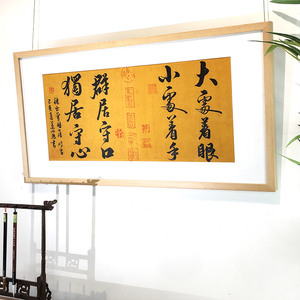 大處着眼
小處着手
群居守口
獨居守心